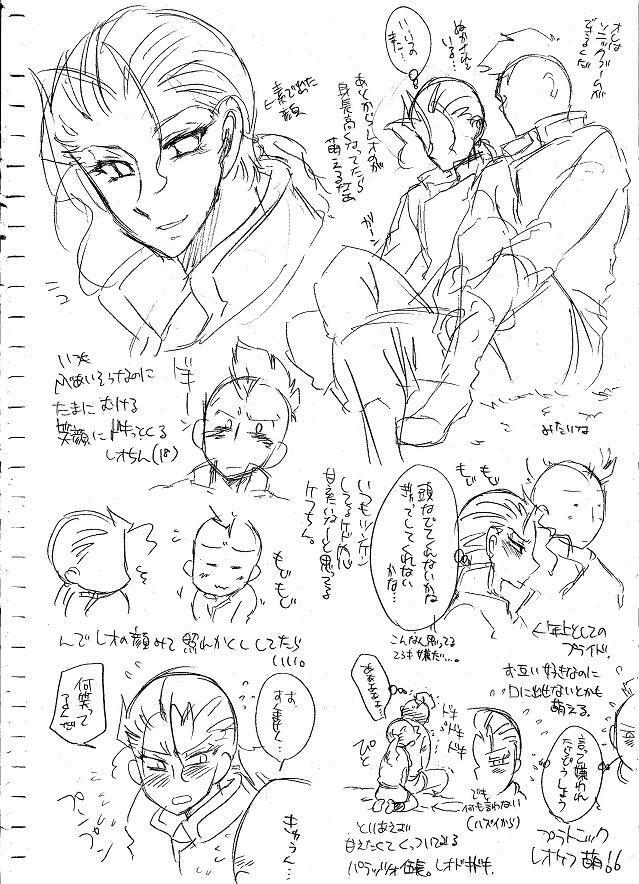 素で出た
顔
いいの
また…
ぬかされて
いる…
オレは
ソニックブームが
できるんだ
あとからレオのが
身長高くなってたら
萌えるなぁ
ガーン
みたいな
いつも
ぶあいそうなのに
たまにむける
笑顔にドキッとくる
レオちん(18)
ドキー
いつもツンケン
してるケド
甘えたいなーと思ってる
もじもじ
頭なでてくんないかな
ぎゅってしてくれない
かな…
もじもじ
こんなん思ってる
んでレオの顔みて照れかくししてたら
いい。
←年上としての
プライド。
お互い好きなのに
口に出せないとかも
萌える。
何笑って
るんだ
す
すんません…
きゅうん…
プン
プン
ドキ
ドキ
ドキ
ぴと
でも
何も言わない
(ハズイから)
言って嫌われ
たらどうしよう
甘えたくてくっついてる
レオドギドギ。
プラトニック
レオケフ萌!!